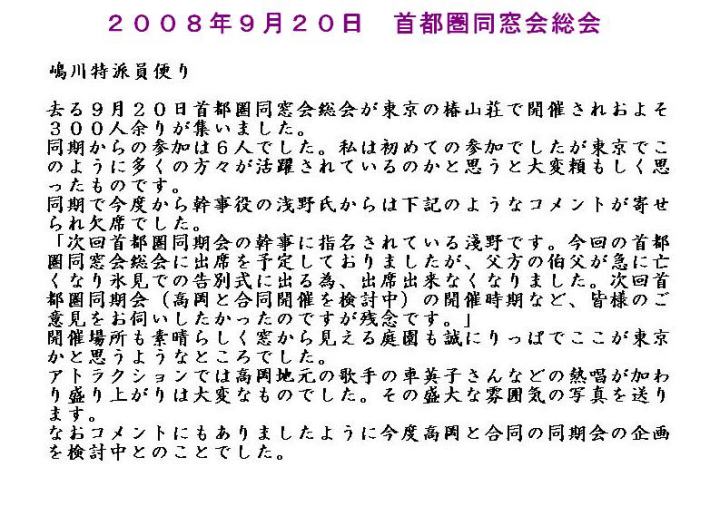 ２００８年９月２０日　首都圏同窓会総会
嶋川特派員便り
去る９月２０日首都圏同窓会総会が東京の椿山荘で開催されおよそ
３００人余りが集いました。
同期からの参加は６人でした。私は初めての参加でしたが東京でこ
のように多くの方々が活躍されているのかと思うと大変頼もしく思
ったものです。
同期で今度から幹事役の浅野氏からは下記のようなコメントが寄せ
られ欠席でした。
「次回首都圏同期会の幹事に指名されている淺野です。今回の首都
圏同窓会総会に出席を予定しておりましたが、父方の伯父が急に亡
くなり氷見での告別式に出る為、出席出来なくなりました。次回首
都圏同期会（高岡と合同開催を検討中）の開催時期など、皆様のご
意見をお伺いしたかったのですが残念です。」
開催場所も素晴らしく窓から見える庭園も誠にりっぱでここが東京
かと思うようなところでした。
アトラクションでは高岡地元の歌手の車英子さんなどの熱唱が加わ
り盛り上がりは大変なものでした。その盛大な雰囲気の写真を送り
ます。
なおコメントにもありましたように今度高岡と合同の同期会の企画
を検討中とのことでした。